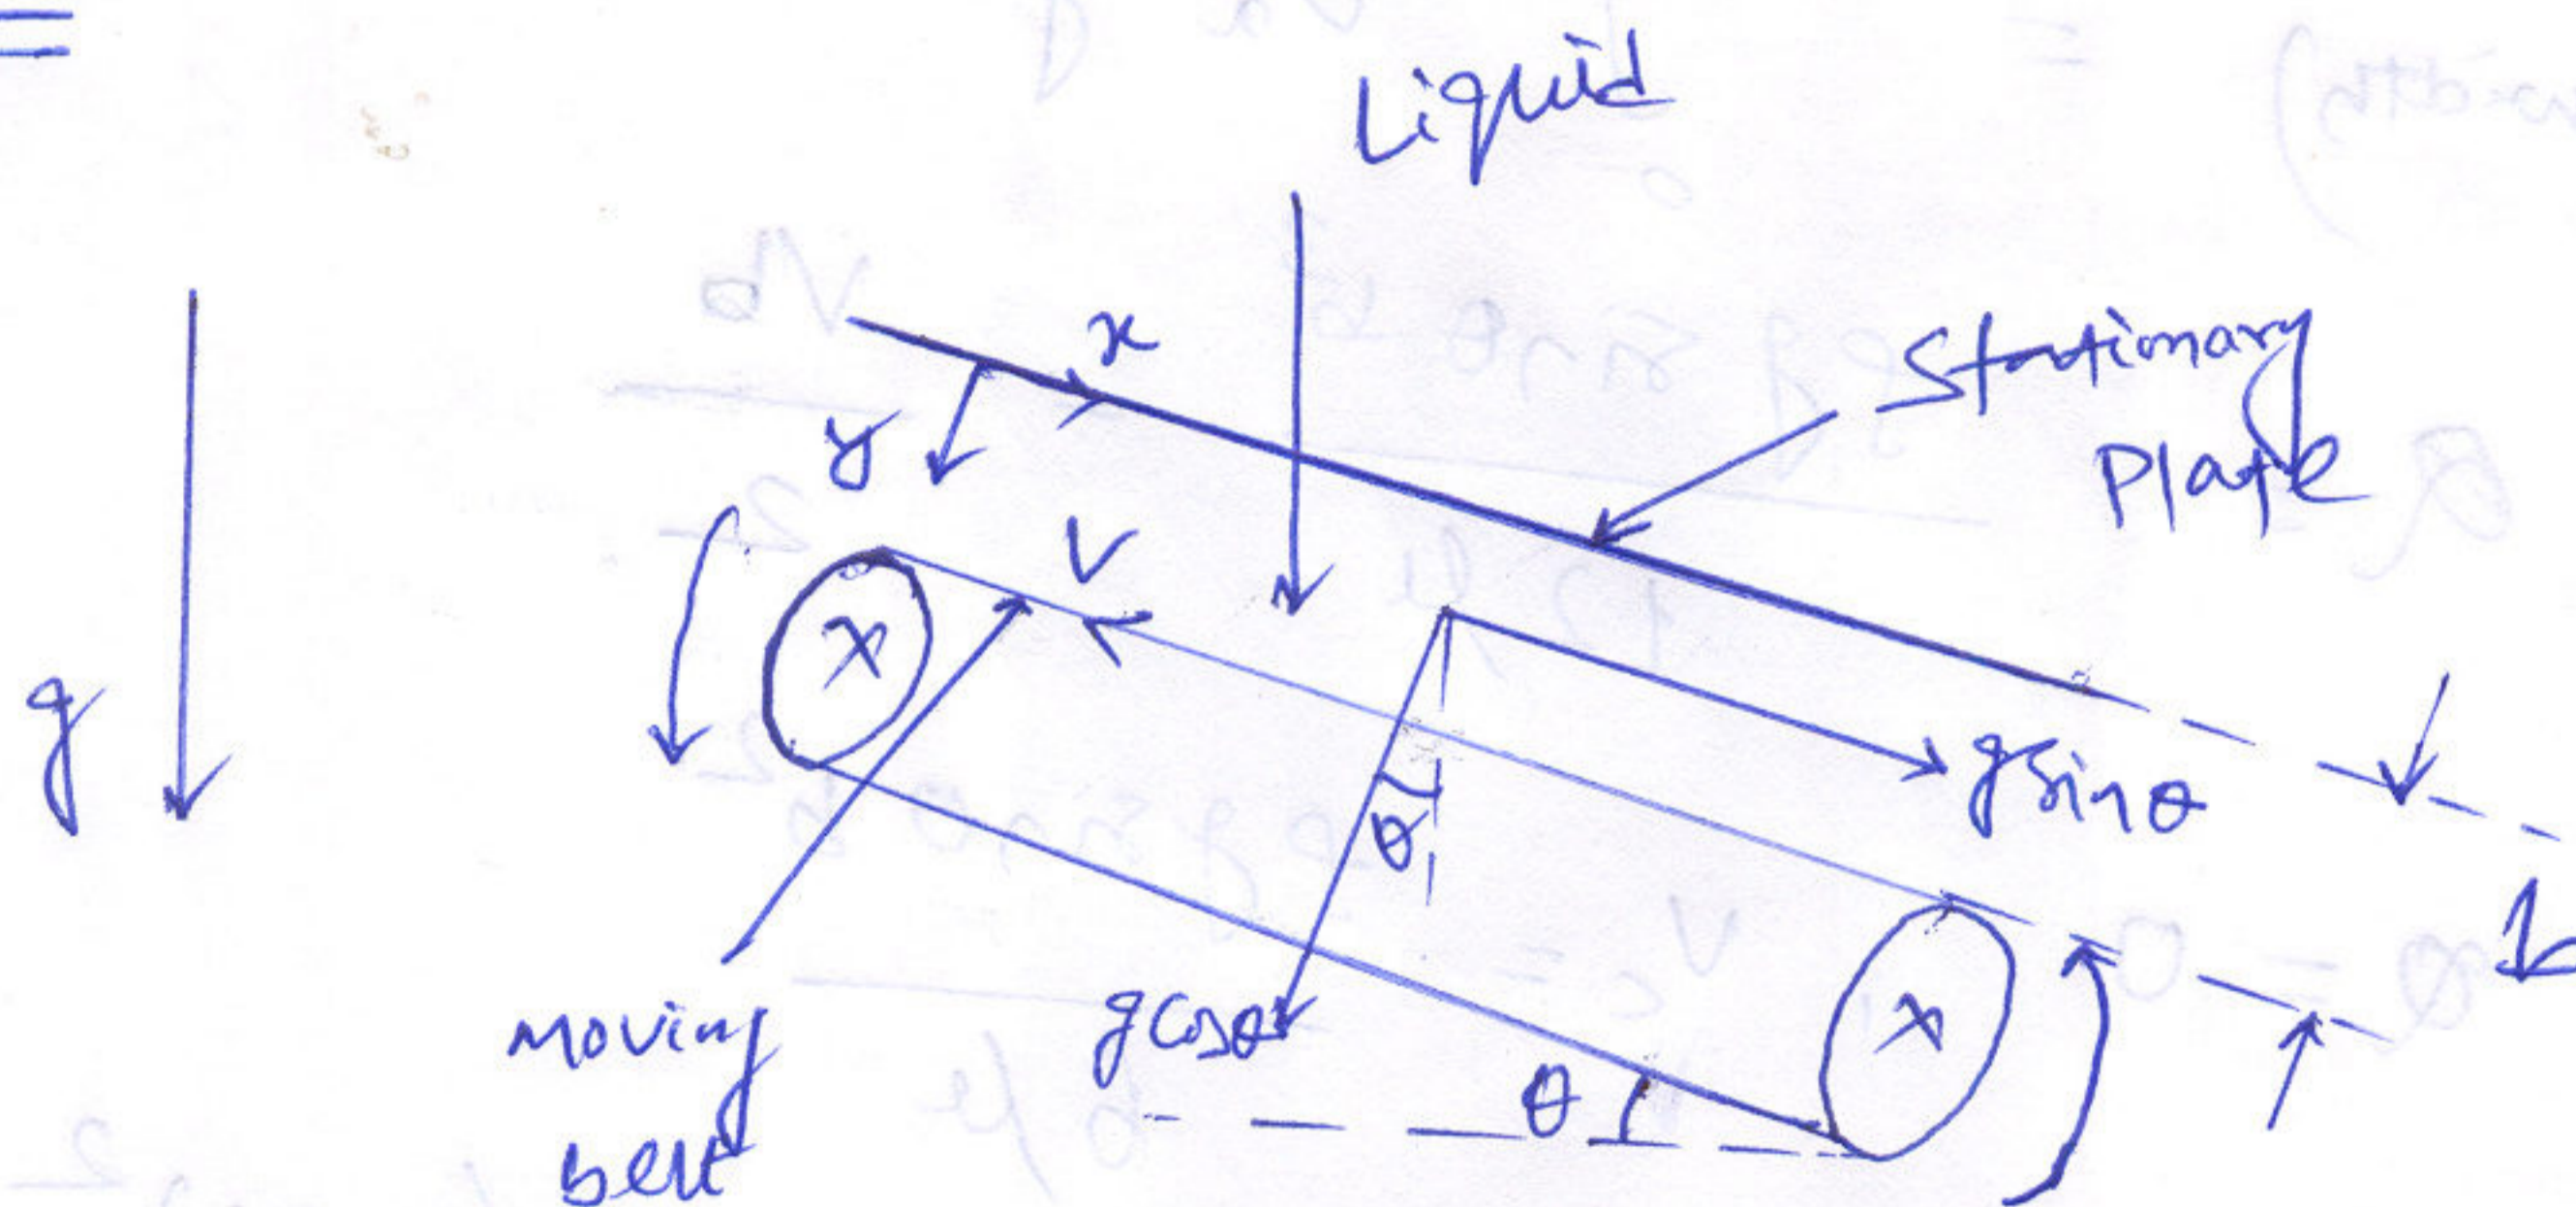 =
Liquid
x
Stationary
Plate
y
V
g
X
g sinθ
θ
b
X
g cosθ
moving
belt
θ